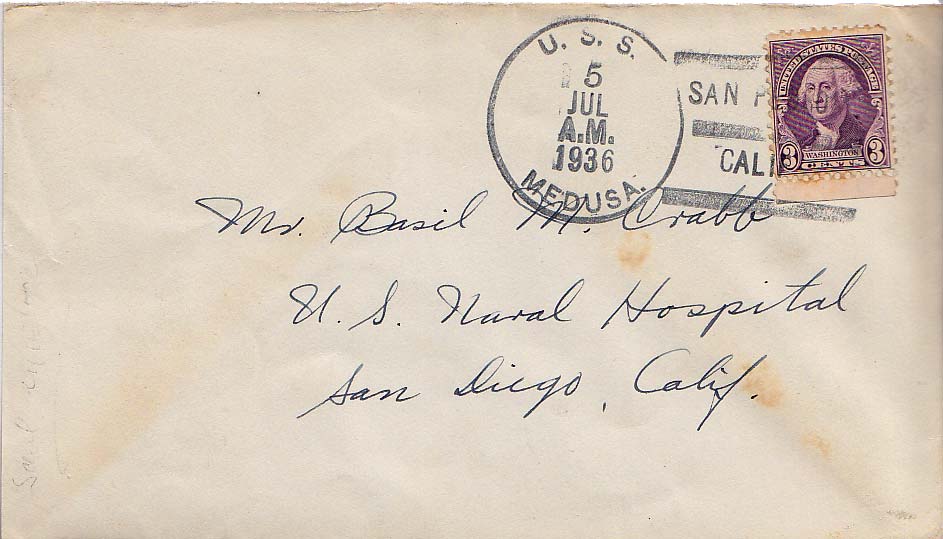 U. S. S.
5
JUL
A.M.
1936
MEDUSA.
SAN P
CALI
UNITED STATES POSTAGE
WASHINGTON
3 CENTS 3
Mr. Basil M. Crabb
U. S. Naval Hospital
San Diego, Calif.